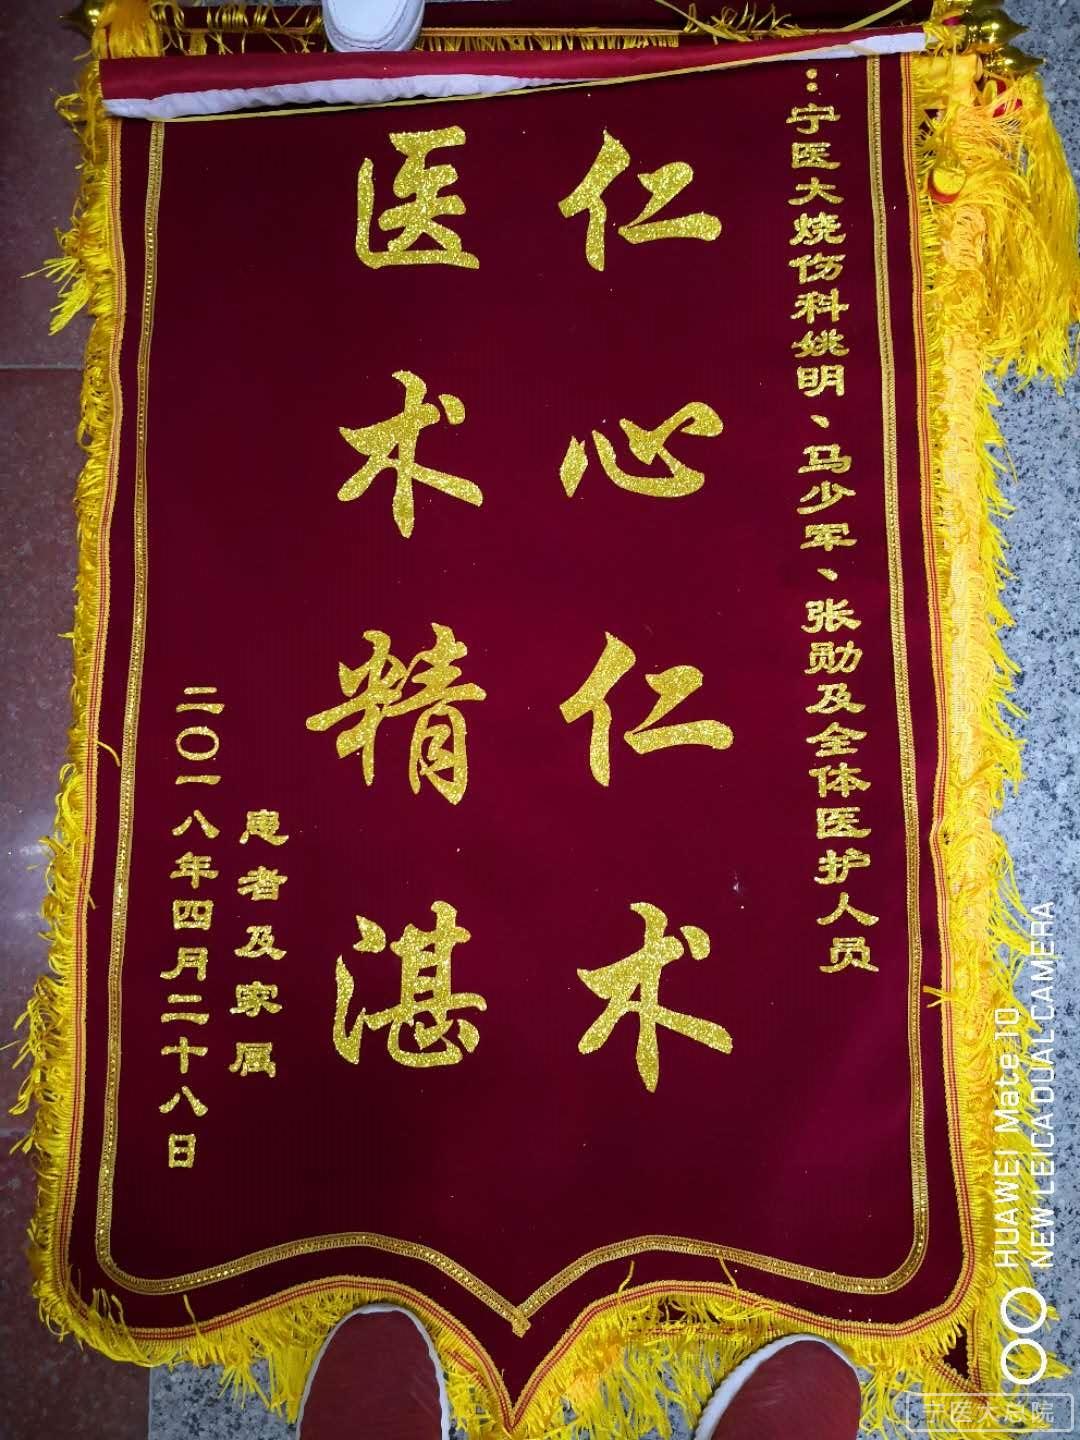 ：宁医大烧伤科姚明、马少军、张勋及全体医护人员
仁心仁术
医术精湛
患者及家属
二〇一八年四月二十八日
HUAWEI Mate 10
NEW LEICA DUAL CAMERA
宁医大总院